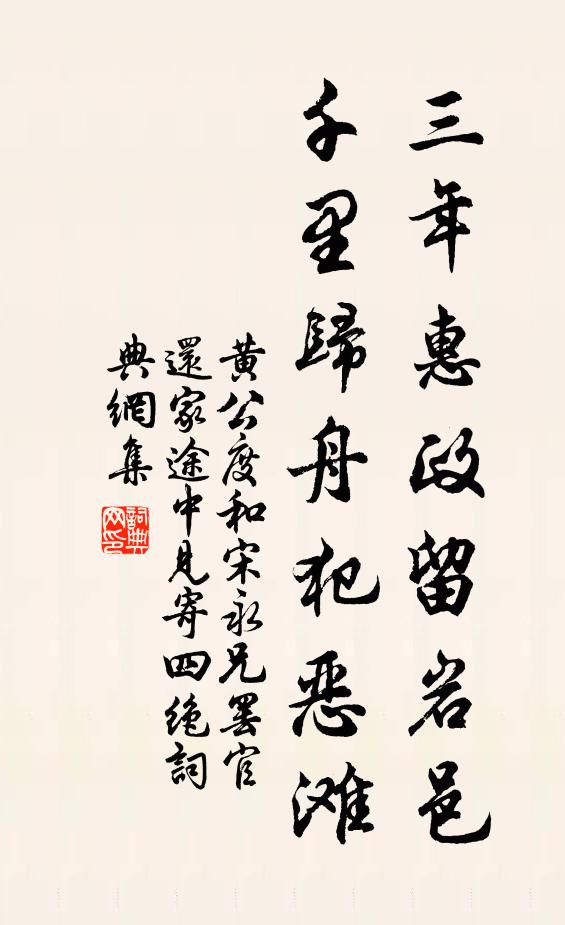 三年惠政留岩邑
千里歸舟犯恶滩
黄公度和宋永兄罢官
還家途中見寄四绝詞
典網集
詞典网印